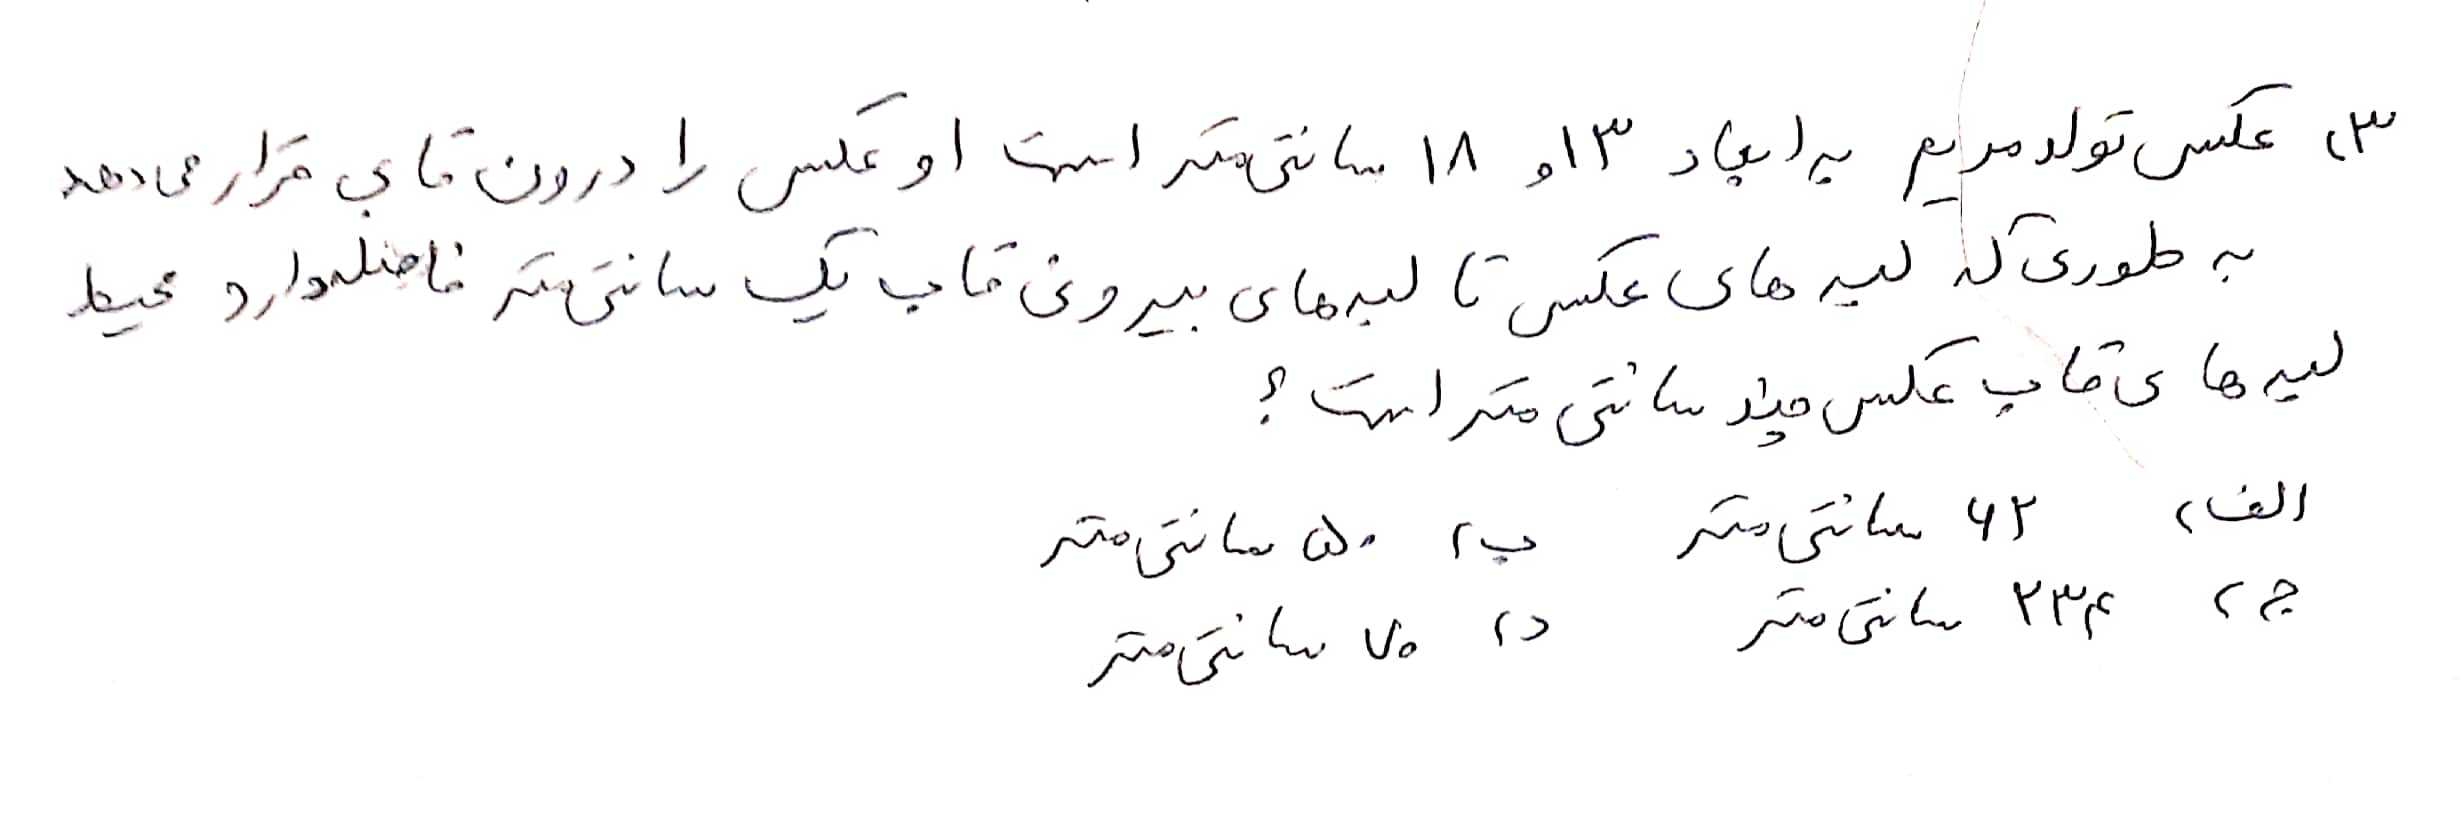 ۳) عکس تولد مریم به ابعاد ۱۳ و ۱۸ سانتی متر است او عکس را درون قابی قرار می دهد
به طوری که لبه های عکس تا لبه های بیرونی قاب یک سانتی متر فاصله دارد محیط
لبه های قاب عکس چند سانتی متر است؟
الف) ۶۲ سانتی متر ب) ۵۰ سانتی متر
ج) ۲۳۴ سانتی متر د) ۷۰ سانتی متر